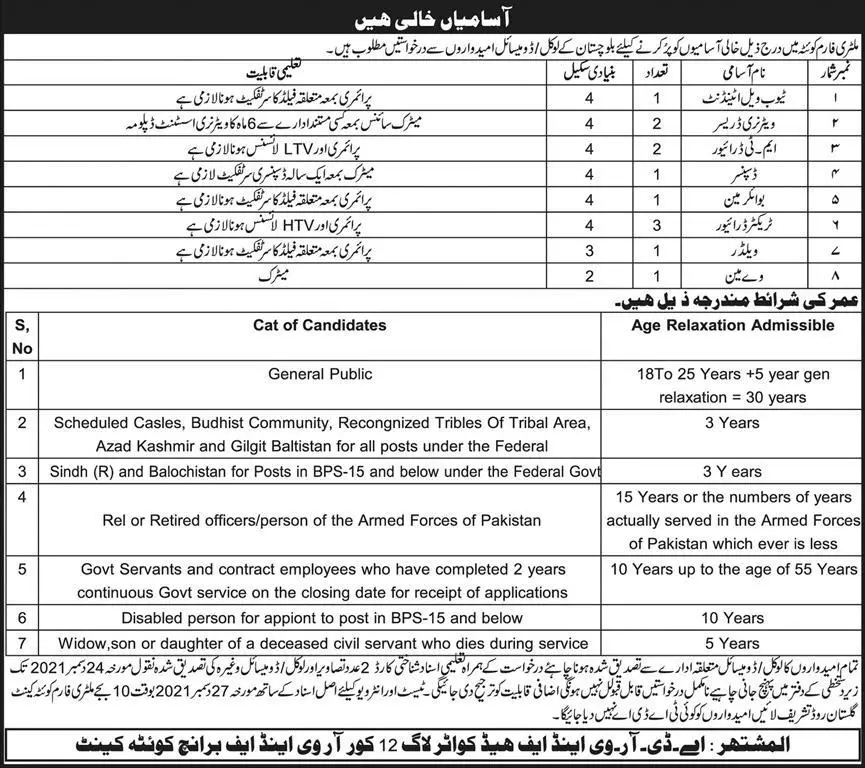 آسامیاں خالی ھیں
ملٹری فارم کوئٹہ میں درج ذیل خالی آسامیوں کو پُر کرنے کیلئے بلوچستان کے لوکل/ڈومیسائل امیدواروں سے درخواستیں مطلوب ہیں۔
نمبر شمار نام آسامی تعداد بنیادی سکیل تعلیمی قابلیت
۱ ٹیوب ویل اٹینڈنٹ 1 4 پرائمری بمعہ متعلقہ فیلڈ کا سرٹیفکیٹ ہونا لازمی ہے
۲ ویٹرنری ڈریسر 2 4 میٹرک سائنس بمعہ کسی مستند ادارے سے 6 ماہ کا ویٹرنری اسسٹنٹ ڈپلومہ
۳ ایم۔ٹی ڈرائیور 2 4 پرائمری اور LTV لائسنس ہونا لازمی ہے
۴ ڈسپنسر 1 4 میٹرک بمعہ ایک سالہ ڈسپنسری سرٹیفکیٹ لازمی ہے
۵ بوائلر مین 1 4 پرائمری بمعہ متعلقہ فیلڈ کا سرٹیفکیٹ ہونا لازمی ہے
۶ ٹریکٹر ڈرائیور 3 4 پرائمری اور HTV لائسنس ہونا لازمی ہے
۷ ویلڈر 1 3 پرائمری بمعہ متعلقہ فیلڈ کا سرٹیفکیٹ ہونا لازمی ہے
۸ وے مین 1 2 میٹرک
عمر کی شرائط مندرجہ ذیل ھیں۔
S, No Cat of Candidates Age Relaxation Admissible
1 General Public 18To 25 Years +5 year gen
relaxation = 30 years
2 Scheduled Casles, Budhist Community, Recongnized Tribles Of Tribal Area, 3 Years
Azad Kashmir and Gilgit Baltistan for all posts under the Federal
3 Sindh (R) and Balochistan for Posts in BPS-15 and below under the Federal Govt 3 Y ears
4 Rel or Retired officers/person of the Armed Forces of Pakistan 15 Years or the numbers of years
actually served in the Armed Forces
of Pakistan which ever is less
5 Govt Servants and contract employees who have completed 2 years 10 Years up to the age of 55 Years
continuous Govt service on the closing date for receipt of applications
6 Disabled person for appiont to post in BPS-15 and below 10 Years
7 Widow,son or daughter of a deceased civil servant who dies during service 5 Years
تمام امیدواروں کا لوکل/ڈومیسائل متعلقہ ادارے سے تصدیق شدہ ہونا چاہئے درخواست کے ہمراہ تعلیمی اسناد شناختی کارڈ 2 عدد تصاویر اور لوکل/ڈومیسائل وغیرہ کی تصدیق شدہ نقول مورخہ 24 دسمبر 2021 تک
زیر دستخطی کے دفتر میں پہنچ جانی چاہیے نامکمل درخواستیں قابل قبول نہیں ہونگی اضافی قابلیت کو ترجیح دی جائیگی۔ٹیسٹ اور انٹرویو کیلئے اصل اسناد کے ساتھ مورخہ 27 دسمبر 2021 بوقت 10 بجے ملٹری فارم کوئٹہ کینٹ
گلستان روڈ تشریف لائیں امیدواروں کو کوئی ٹی اے ڈی اے نہیں دیا جائیگا۔
المشتھر : اے۔ڈی۔آر۔وی اینڈ ایف ھیڈ کواٹر لاگ 12 کور آر وی اینڈ ایف برانچ کوئٹہ کینٹ